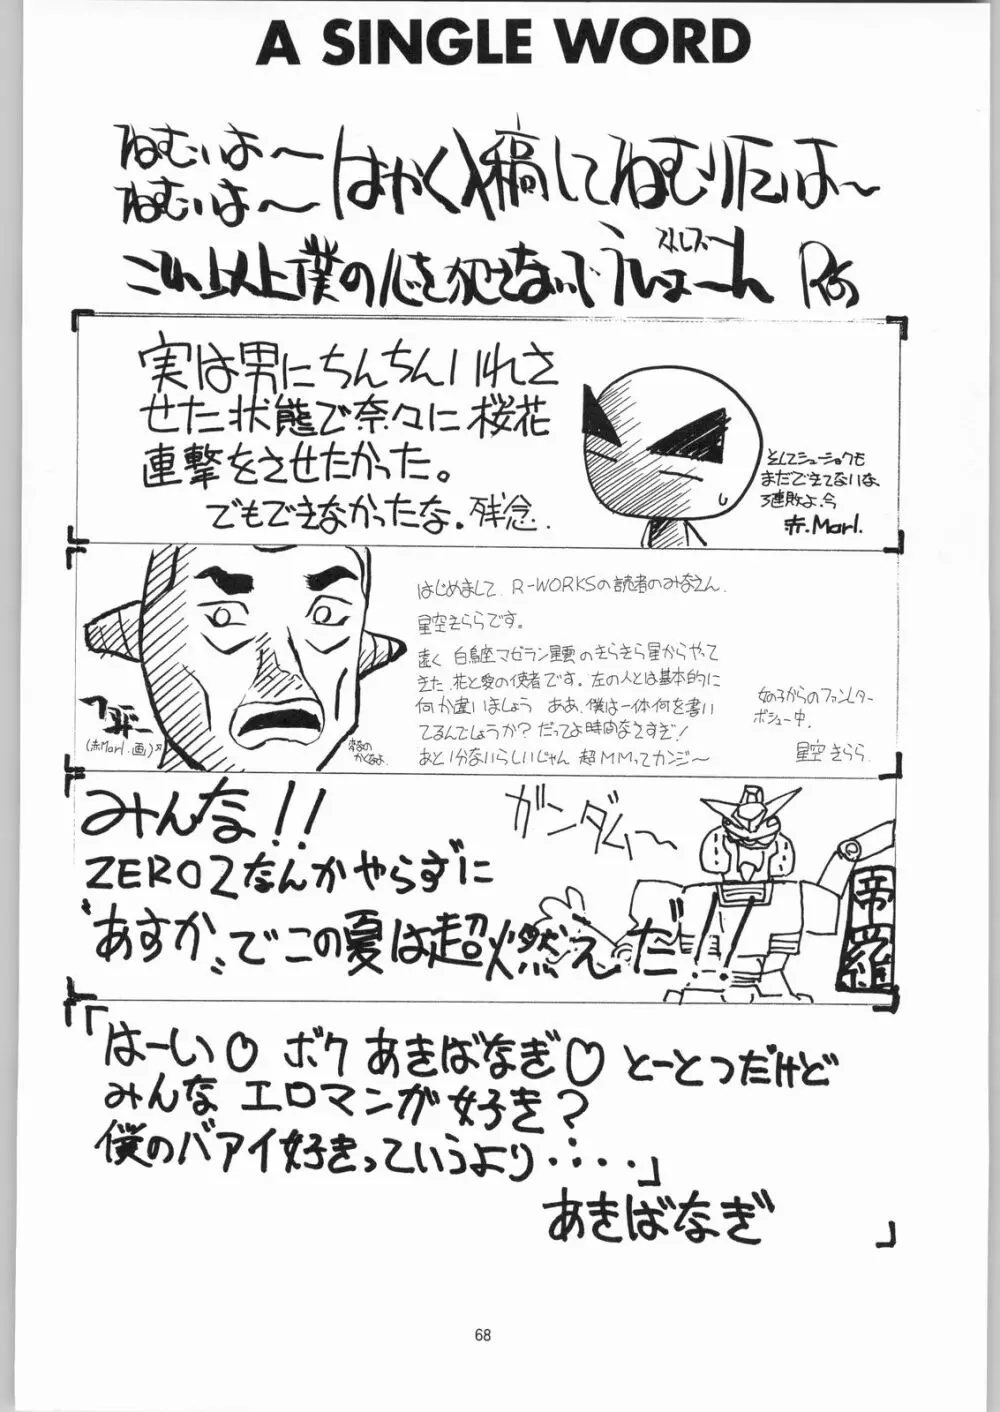 A SINGLE WORD
ねむいよ〜
ねむいよ〜
はやく入稿してねむりたいよ〜
これ以上僕の心を犯さないで
実は男にちんちんいれさ
せた状態で奈々に桜花
連撃をさせたかった。
でもできなかったな。残念.
そしてシューショクも
まだできてないな
3連敗よ、今
赤.Marl.
はじめまして. R-WORKSの読者のみなさん.
星空きららです。
遠く 白鳥座マゼラン星雲のきらきら星からやって
きた、花と愛の使者です。左の人とは基本的に
何か違いましょう ああ、僕は一体何を書い
てるんでしょうか？だってよ時間なさすぎ！
あと1分ないらしいじゃん 超MMってカンジ〜
女の子からのファンレター
ボシュー中.
星空きらら.
(赤Marl.画)
みんな!!
ZERO2なんかやらずに
"あすか"でこの夏は超燃えだ!!
ガンダム〜
帝羅
「はーい♡ ボク あきばなぎ♡ とーとつだけど
みんな エロマンガ好き?
僕のバアイ好きっていうより・・・・」
あきばなぎ
68